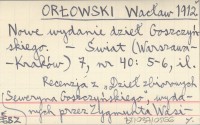 ORŁOWSKI Wacław 1912
Nowe wydanie dzieł Goszczyń-
skiego. - Świat (Warszawa-
-Kraków) 7, nr 40: 5-6, il.
Recenzja z "Dzieł zbiorowych
Seweryna Goszczyńskiego, wyda-
nych przez Zygmunta Wasi-